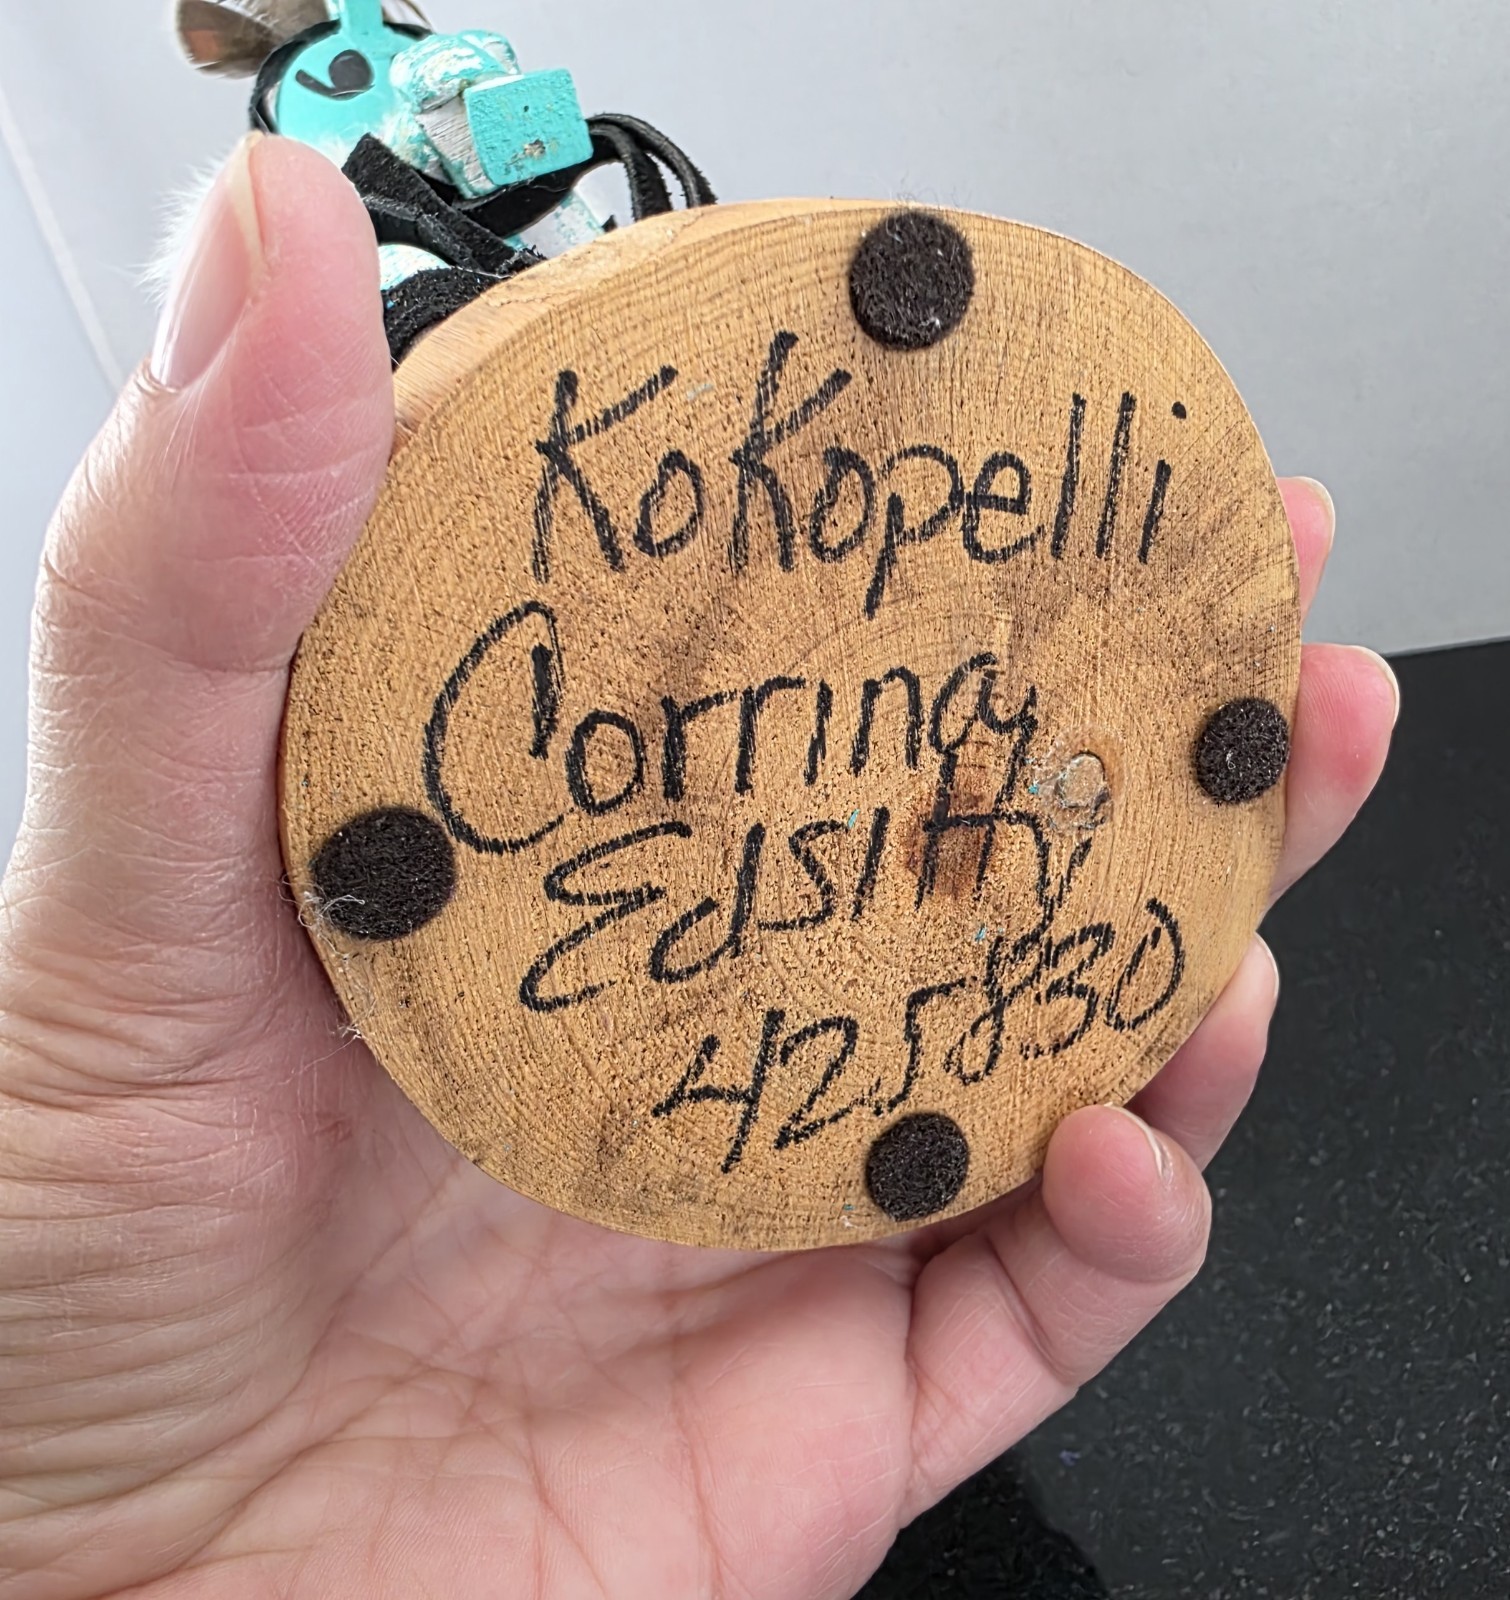 Kokopelli
Corrina
Edsitty
425830